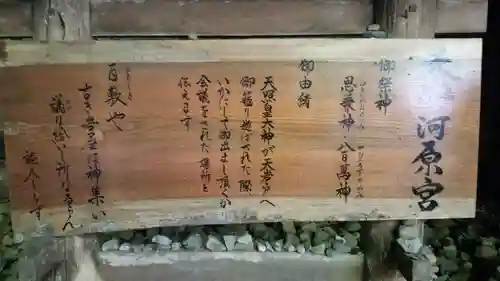 天 河原宮
御祭神
思兼神・八百萬神
御由緒
天照皇大神が天岩戸へ
御籠り遊ばされた際
いかにして御出まし頂くか
会議をされた場所と
伝えます
百敷や
古き昔は神集い
議り給いし所なるらん
詠人しらず